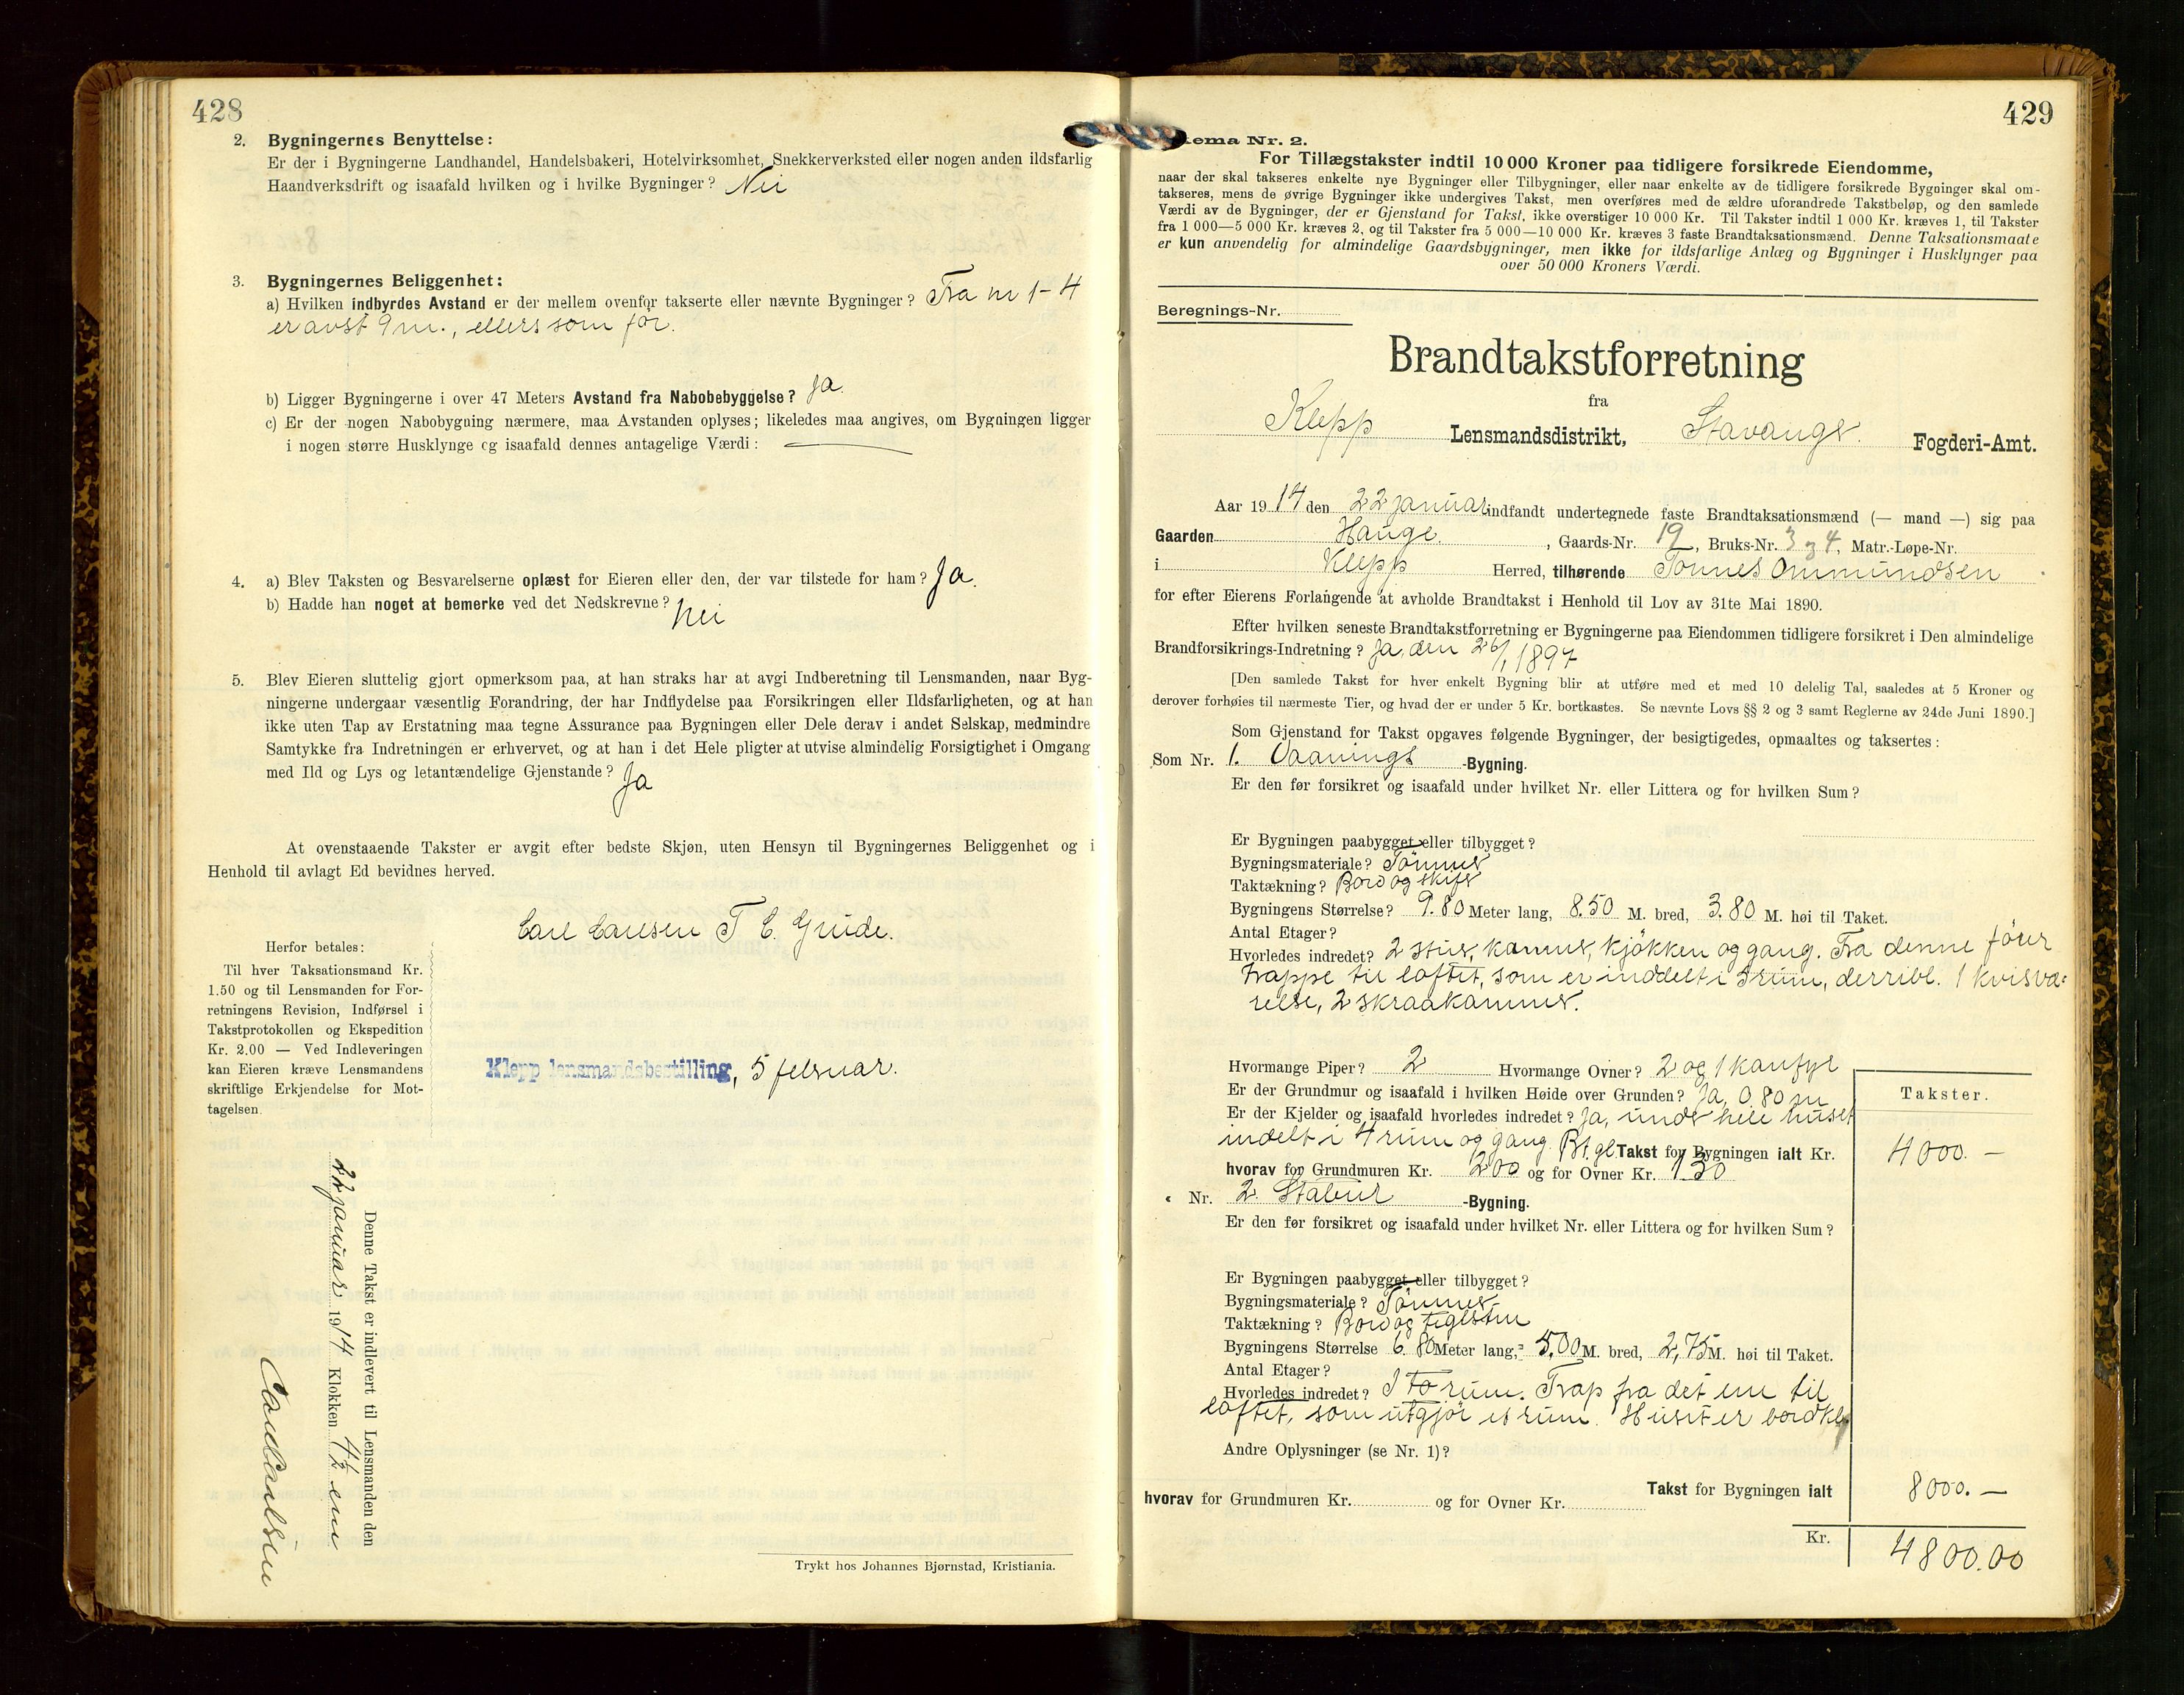 428
2. Bygningernes Benyttelse:
Er der i Bygningerne Landhandel, Handelsbakeri, Hotelvirksomhet, Snekkerverksted eller nogen anden ildsfarlig
Haandverksdrift og isaafald hvilken og i hvilke Bygninger? Nei
3. Bygningernes Beliggenhet:
a) Hvilken indbyrdes Avstand er der mellem ovenfor takserte eller nævnte Bygninger? Fra nr 1-4
er avst 9 m., ellers som før.
b) Ligger Bygningerne i over 47 Meters Avstand fra Nabobebyggelse? Ja.
c) Er der nogen Nabobygning nærmere, maa Avstanden oplyses; likeledes maa angives, om Bygningen ligger
i nogen større Husklynge og isaafald dennes antagelige Værdi: —
4. a) Blev Taksten og Besvarelserne oplæst for Eieren eller den, der var tilstede for ham? Ja.
b) Hadde han noget at bemerke ved det Nedskrevne? Nei
5. Blev Eieren sluttelig gjort opmerksom paa, at han straks har at avgi Indberetning til Lensmanden, naar Byg-
ningerne undergaar væsentlig Forandring, der har Indflydelse paa Forsikringen eller Ildsfarligheten, og at han
ikke uten Tap av Erstatning maa tegne Assurance paa Bygningen eller Dele derav i andet Selskap, medmindre
Samtykke fra Indretningen er erhvervet, og at han i det Hele pligter at utvise almindelig Forsigtighet i Omgang
med Ild og Lys og letantændelige Gjenstande? Ja
At ovenstaaende Takster er avgit efter bedste Skjøn, uten Hensyn til Bygningernes Beliggenhet og i
Henhold til avlagt Ed bevidnes herved.
Carl Carlsen T. E. Grude.
Herfor betales:
Til hver Taksationsmand Kr.
1.50 og til Lensmanden for For-
retningens Revision, Indførsel i
Takstprotokollen og Ekspedition
Kr. 2.00 — Ved Indleveringen
kan Eieren kræve Lensmandens
skriftlige Erkjendelse for Mot-
tagelsen.
Klepp lensmandsbestilling, 5 februar.
Denne Takst er indlevert til Lensmanden den
22 januar 1914 Klokken 4½ em
Carl Carlsen
Trykt hos Johannes Bjørnstad, Kristiania.
429
ema Nr. 2.
For Tillægstakster indtil 10 000 Kroner paa tidligere forsikrede Eiendomme,
naar der skal takseres enkelte nye Bygninger eller Tilbygninger, eller naar enkelte av de tidligere forsikrede Bygninger skal om-
takseres, mens de øvrige Bygninger ikke undergives Takst, men overføres med de ældre uforandrede Takstbeløp, og den samlede
Værdi av de Bygninger, der er Gjenstand for Takst, ikke overstiger 10 000 Kr. Til Takster indtil 1 000 Kr. kræves 1, til Takster
fra 1 000—5 000 Kr. kræves 2, og til Takster fra 5 000—10 000 Kr. kræves 3 faste Brandtaksationsmænd. Denne Taksationsmaate
er kun anvendelig for almindelige Gaardsbygninger, men ikke for ildsfarlige Anlæg og Bygninger i Husklynger paa
over 50 000 Kroners Værdi.
Beregnings-Nr.
Brandtakstforretning
fra
Klepp Lensmandsdistrikt, Stavanger Fogderi-Amt.
Aar 1914 den 22 januar indfandt undertegnede faste Brandtaksationsmænd (— mand —) sig paa
Gaarden Hauge, Gaards-Nr. 19, Bruks-Nr. 3 og 4, Matr.-Løpe-Nr.
i Klepp Herred, tilhørende Tønnes Ommundsen
for efter Eierens Forlangende at avholde Brandtakst i Henhold til Lov av 31te Mai 1890.
Efter hvilken seneste Brandtakstforretning er Bygningerne paa Eiendommen tidligere forsikret i Den almindelige
Brandforsikrings-Indretning? Ja, den 26/1 1897
[Den samlede Takst for hver enkelt Bygning blir at utføre med et med 10 delelig Tal, saaledes at 5 Kroner og
derover forhøies til nærmeste Tier, og hvad der er under 5 Kr. bortkastes. Se nævnte Lovs §§ 2 og 3 samt Reglerne av 24de Juni 1890.]
Som Gjenstand for Takst opgaves følgende Bygninger, der besigtigedes, opmaaltes og taksertes:
Som Nr. 1. Vaanings -Bygning.
Er den før forsikret og isaafald under hvilket Nr. eller Littera og for hvilken Sum?
Er Bygningen paabygget eller tilbygget?
Bygningsmateriale? Tømmer
Taktækning? Bord og skifer
Bygningens Størrelse? 9.80 Meter lang, 8.50 M. bred, 3.80 M. høi til Taket.
Antal Etager?
Hvorledes indredet? 2 stuer, kammer, kjøkken og gang. Fra denne fører
trappe til loftet, som er inddelt i 3 rum, derribl. 1 kvisvæ-
relse, 2 skraakammer.
Hvormange Piper? 2 Hvormange Ovner? 2 og 1 komfyr
Er der Grundmur og isaafald i hvilken Høide over Grunden? Ja, 0.80 m
Takster.
Er der Kjelder og isaafald hvorledes indredet? Ja, under hele huset
indelt i 4 rum og gang. Bt. gl. Takst for Bygningen ialt Kr. 4000.—
hvorav for Grundmuren Kr. 200 og for Ovner Kr. 130
Nr. 2. Stabur -Bygning.
Er den før forsikret og isaafald under hvilket Nr. eller Littera og for hvilken Sum?
Er Bygningen paabygget eller tilbygget?
Bygningsmateriale? Tømmer
Taktækning? Bord og teglsten
Bygningens Størrelse 6.80 Meter lang, 5,00 M. bred, 2,75 M. høi til Taket.
Antal Etager?
Hvorledes indredet? I to rum. Trap fra det ene til
loftet, som utgjør et rum. Huset er bordkl
Andre Oplysninger (se Nr. 1)?
Takst for Bygningen ialt 8000.—
hvorav for Grundmuren Kr. og for Ovner Kr.
Kr. 4800.00